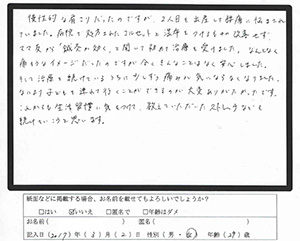 慢性的な肩こりだったのですが、2人目を出産して腰痛に悩まされ
ていました。病院で処方されたコルセットと湿布をつけるものの改善せず
ママ友から"鍼灸が効く"と聞いて初めて治療を受けました。なんとなく
痛そうなイメージだったのですが全くそんなことはなく安心しました。
そして治療を続けているうちに少しずつ痛みが気にならなくなりました。
なにより子どもを連れて行くことができるのが大変ありがたかったです。
これからも生活習慣に気をつけて、教えていただいたストレッチなども
続けていこうと思います。
紙面などに掲載する場合、お名前を載せてもよろしいでしょうか?
□はい ☑いいえ □匿名で □年齢はダメ
お名前
記入日(2017)年(3)月(2)日 性別(男・女)年齢(29)歳